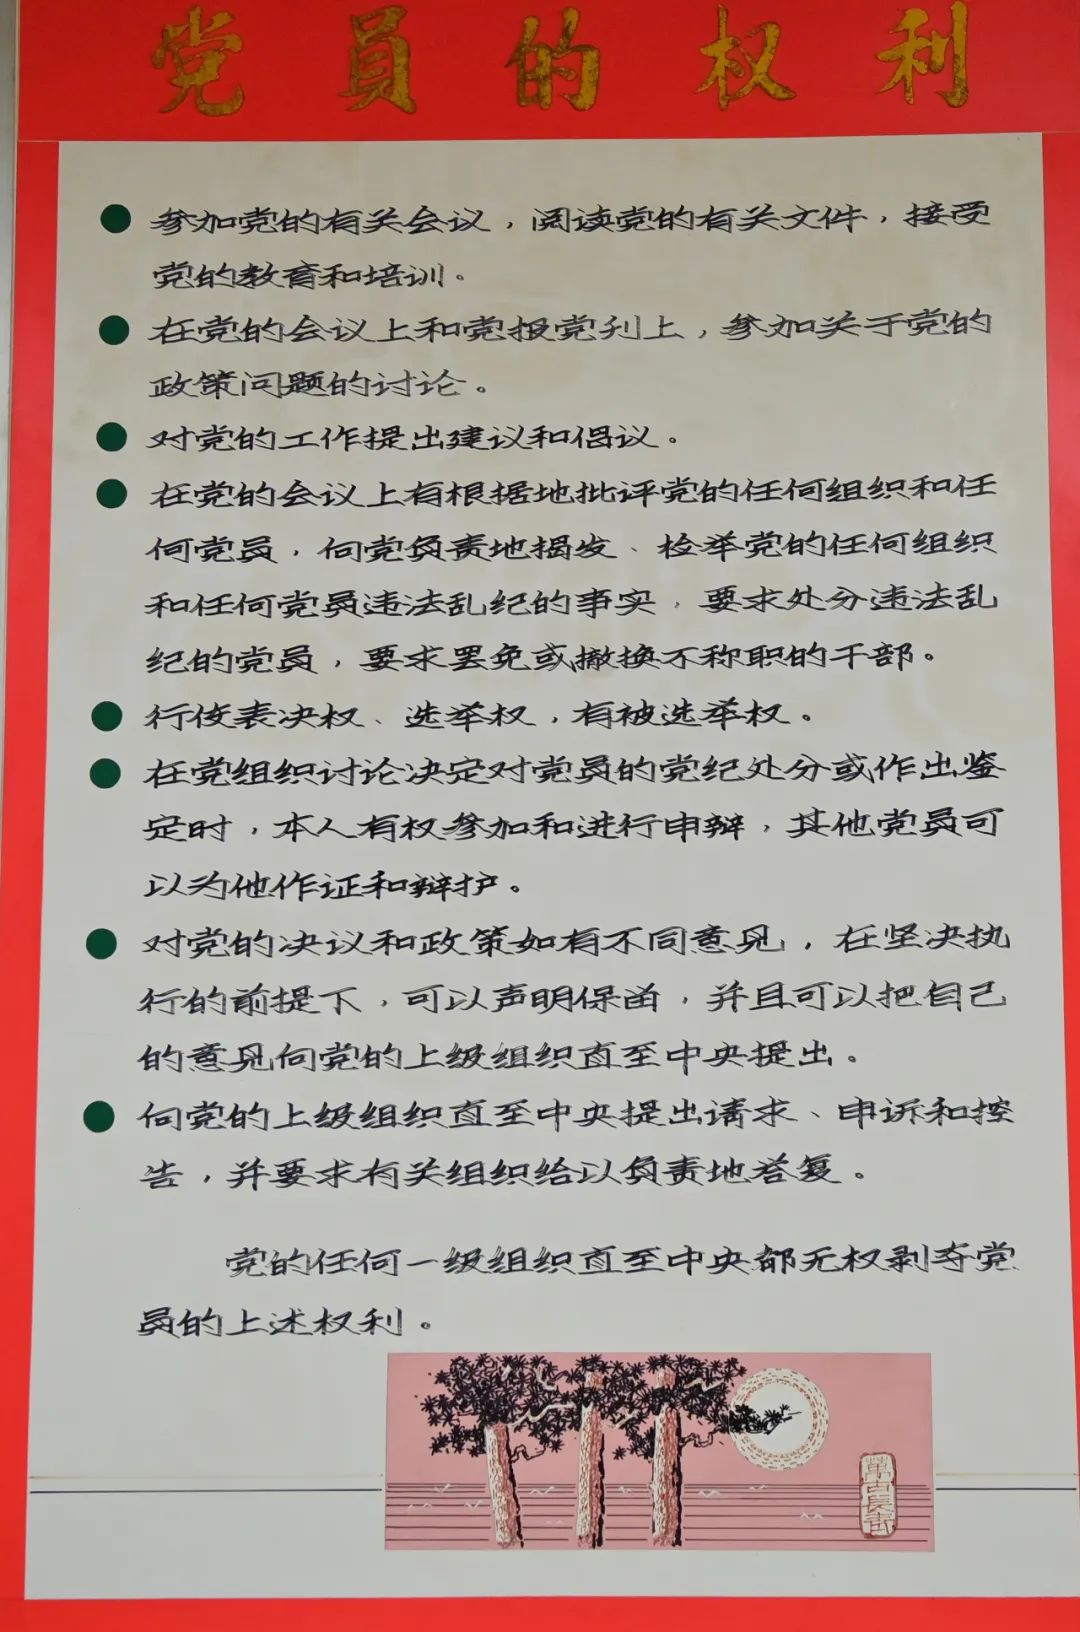 党員的权利
● 参加党的有关会议，阅读党的有关文件，接受
党的教育和培训。
● 在党的会议上和党报党刊上，参加关于党的
政策问题的讨论。
● 对党的工作提出建议和倡议。
● 在党的会议上有根据地批评党的任何组织和任
何党员，向党负责地揭发、检举党的任何组织
和任何党员违法乱纪的事实，要求处分违法乱
纪的党员，要求罢免或撤换不称职的干部。
● 行使表决权、选举权，有被选举权。
● 在党组织讨论决定对党员的党纪处分或作出鉴
定时，本人有权参加和进行申辩，其他党员可
以为他作证和辩护。
● 对党的决议和政策如有不同意见，在坚决执
行的前提下，可以声明保留，并且可以把自己
的意见向党的上级组织直至中央提出。
● 向党的上级组织直至中央提出请求、申诉和控
告，并要求有关组织给以负责地答复。
党的任何一级组织直至中央都无权剥夺党
员的上述权利。
萬古長青